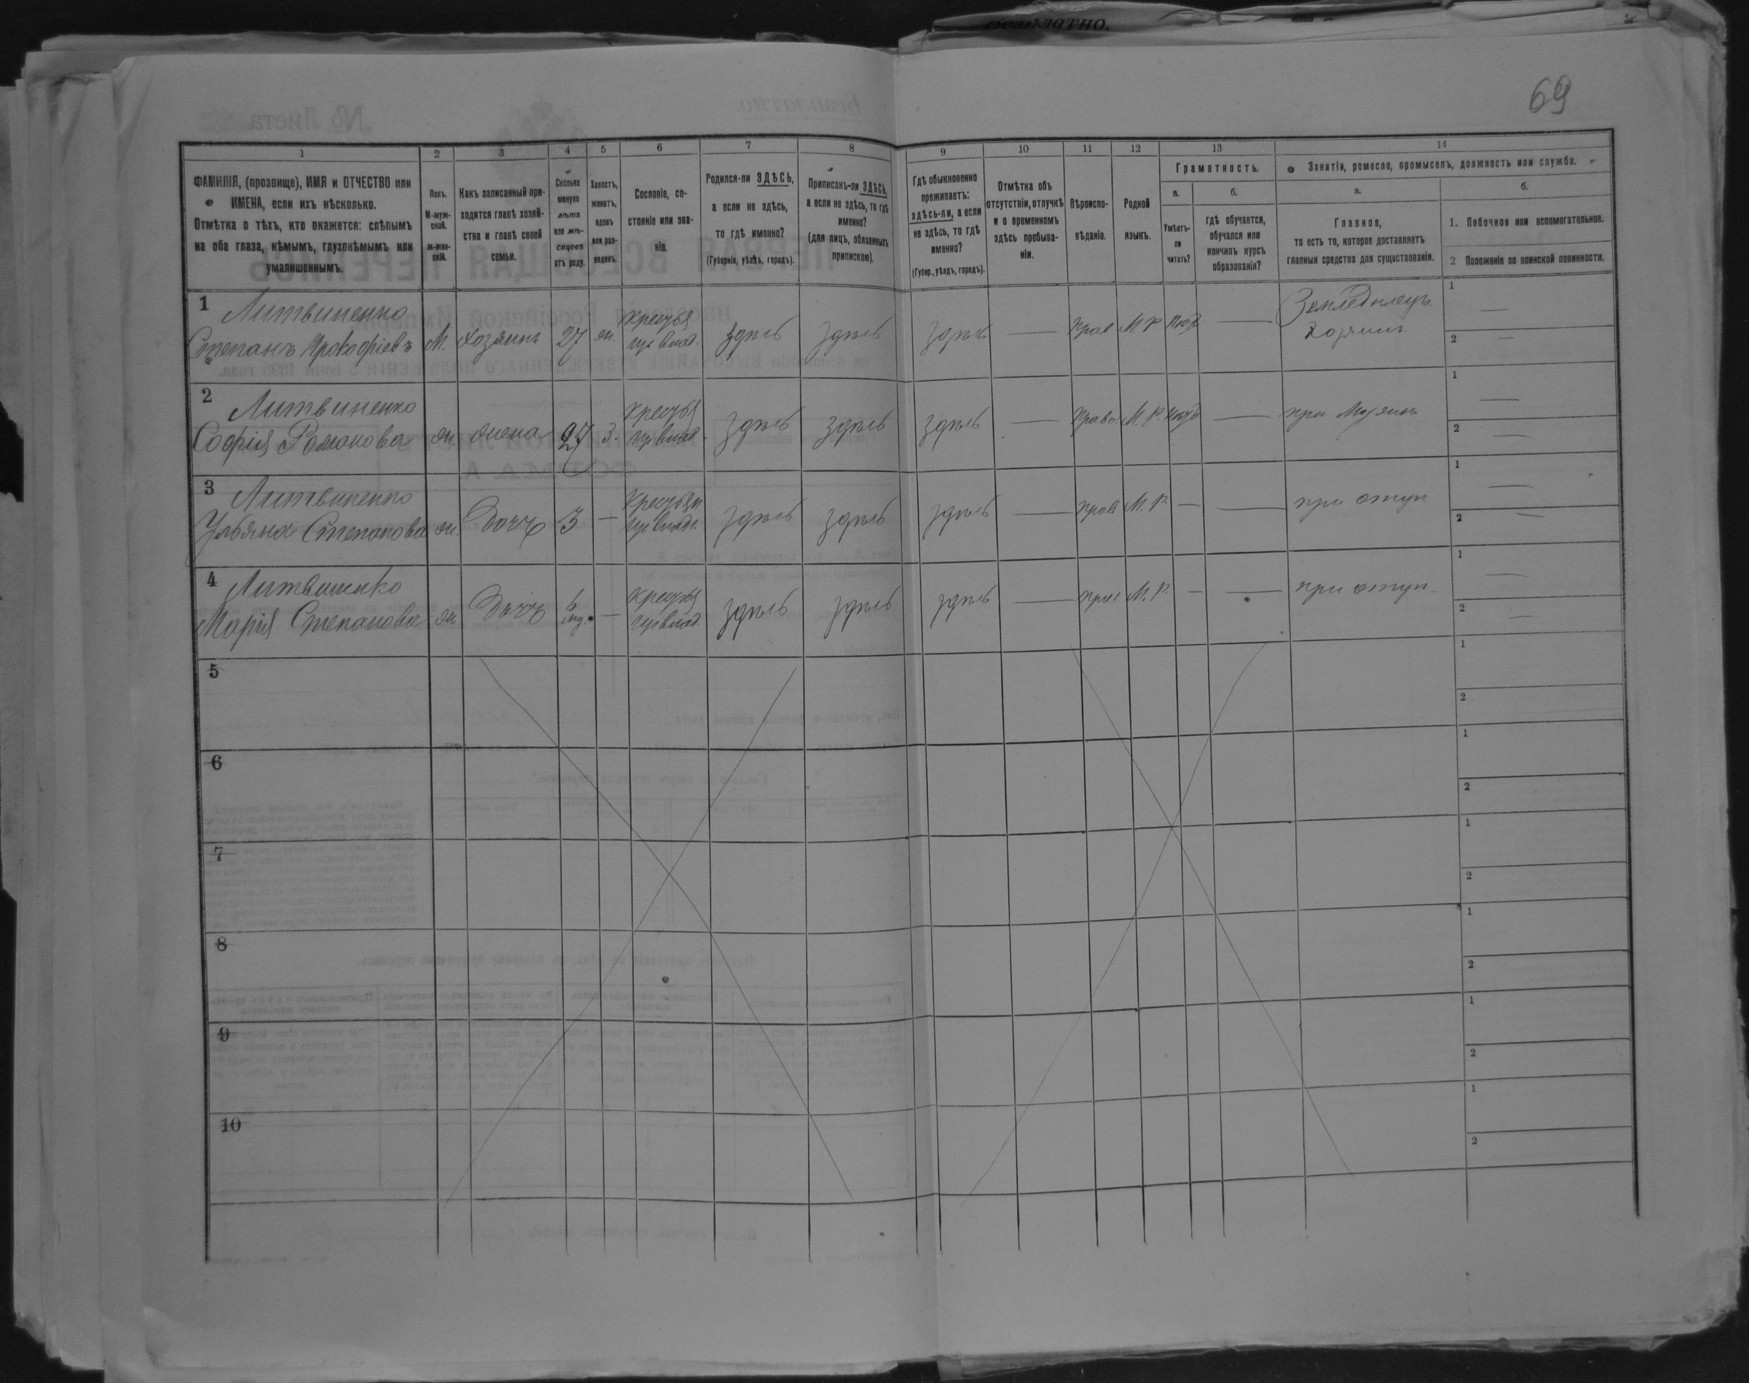 Безплатно.
69
1
2
3
4
5
6
7
8
9
10
11
12
13
14
ФАМИЛІЯ, (прозвище), ИМЯ и ОТЧЕСТВО или
ИМЕНА, если ихъ нѣсколько.
Отмѣтка о тѣхъ, кто окажется: слѣпымъ
на оба глаза, нѣмымъ, глухонѣмымъ или
умалишеннымъ.
Полъ.
М-муж-
ской.
ж-жен-
скій.
Какъ записанный при-
ходится главѣ хозяй-
ства и главѣ своей
семьи.
Сколько
минуло
лѣтъ
или мѣ-
сяцевъ
отъ роду.
Холостъ,
женатъ,
вдовъ
или раз-
веденъ.
Сословіе, со-
стояніе или зва-
ніе.
Родился-ли ЗДѢСЬ,
а если не здѣсь,
то гдѣ именно?
(Губернія, уѣздъ, городъ).
Приписанъ-ли ЗДѢСЬ,
а если не здѣсь, то гдѣ
именно?
(для лицъ, обязанныхъ
припискою).
Гдѣ обыкновенно
проживаетъ:
здѣсь-ли, а если
не здѣсь, то гдѣ
именно?
(Губер., уѣздъ, городъ).
Отмѣтка объ
отсутствіи, отлучкѣ
и о временномъ
здѣсь пребыва-
ніи.
Вѣроиспо-
вѣданіе.
Родной
языкъ.
Грамотность.
а.
Умѣетъ-
ли
читать?
б.
гдѣ обучается,
обучался или
кончилъ курсъ
образованія?
Занятіе, ремесло, промыселъ, должность или служба.
а.
Главное,
то есть то, которое доставляетъ
главныя средства для существованія.
б.
1. Побочное или вспомогательное.
2 Положеніе по воинской повинности.
1 Литвиненко
Степанъ Прокофіевъ М. хозяинъ 27 ж. здѣсь здѣсь здѣсь — прав М. Р. — Земледѣлецъ
Хозяинъ
1 —
2 —
2 Литвиненко
Софія Романова ж. жена 27 з. здѣсь здѣсь здѣсь — Право М. Р. — при
1 —
2 —
3 Литвиненко
Ульяна Степанова ж. Дочь 3 — здѣсь здѣсь здѣсь — прав М. Р. — — при отцѣ
1 —
2 —
4 Литвиненко
Марія Степанова ж. Дочь 6 — здѣсь здѣсь здѣсь — прав М. Р. — — при отцѣ
1 —
2 —
5
1
2
6
1
2
7
1
2
8
1
2
9
1
2
10
1
2